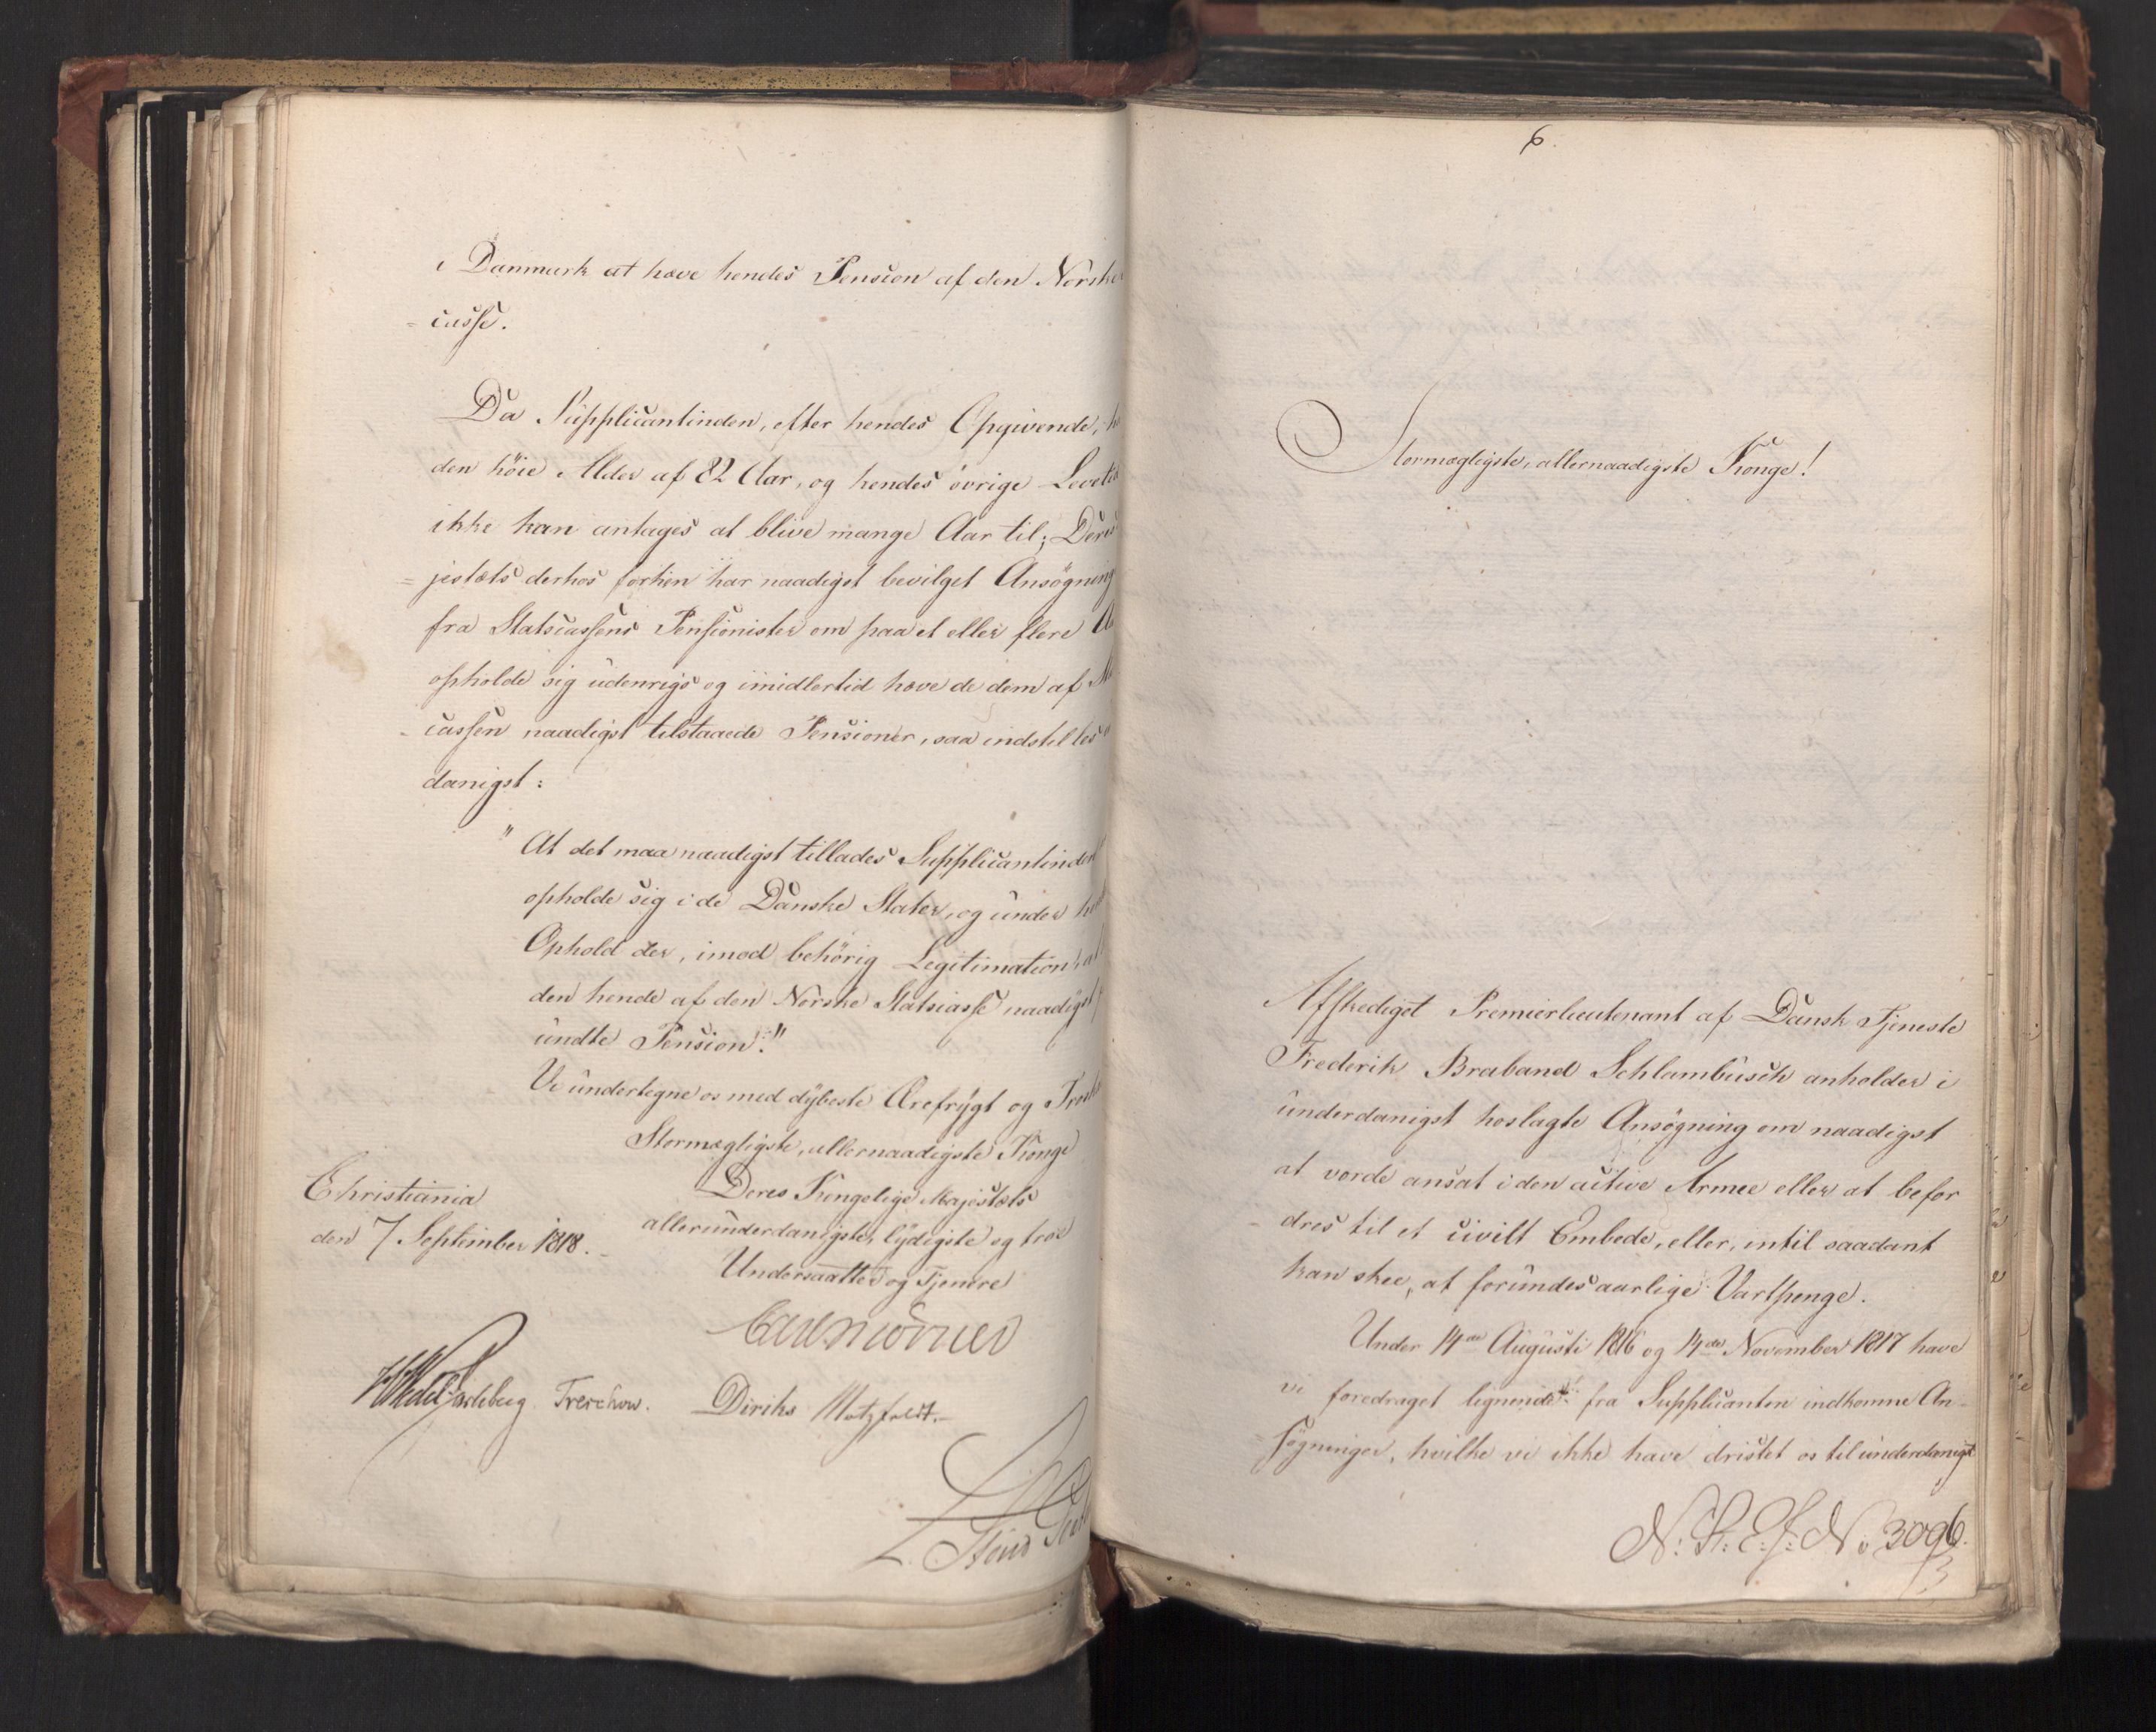 i Danmark at hæve hendes Pension af den Norske
= casse.
Da Supplicantinden, efter hendes Opgivende,
den höie Alder af 82 Aar, og hendes övrige Levetid
ikke kan antages at blive mange Aar til; Deres
= jestæts derhos forhen har naadigst bevilget Ansøgning
fra Statscassens Pensionister om paa et eller flere
opholde sig udenrigs og imidlertid hæve de dem af
- cassen naadigst tilstaaede Pensioner, saa indstilles
danigst:
" At det maa naadigst tillades Supplicantinden
opholde sig i de Danske Stater, og under
Ophold der, imod behörig Legitimation, at
den hende af den Norske Statscasse naadigst
undte Pension."
Vi undertegne os med dybeste Ærefrygt og Troskab
Stormægtigste, allernaadigste Konge
Deres Kongelige Majestæts
allerunderdanigste, lydigste og troe
Undersaatter og Tjenere
Christiania
den 7 September 1818.
Carl Mörner
HWedel Jarlsberg Treschow. Diriks Motzfeldt.
6.
Stormægtigste, allernaadigste Konge!
Afskediget Premierlieutenant af Dansk Tjeneste
Frederik Braband Schlambusch anholder i
underdanigst hoslagte Ansøgning om naadigst
at vorde ansat i den active Armee eller at befor
= dres til et civilt Embede, eller, intil saadant
kan skee, at forundes aarlige Vartpenge.
Under 14de Augusti 1816 og 14de November 1817 have
vi foredraget lignende fra Supplicanten indkomne An-
= søgninger, hvilke vi ikke have dristet os til underdanigst
N: P: E: J: No 3096.